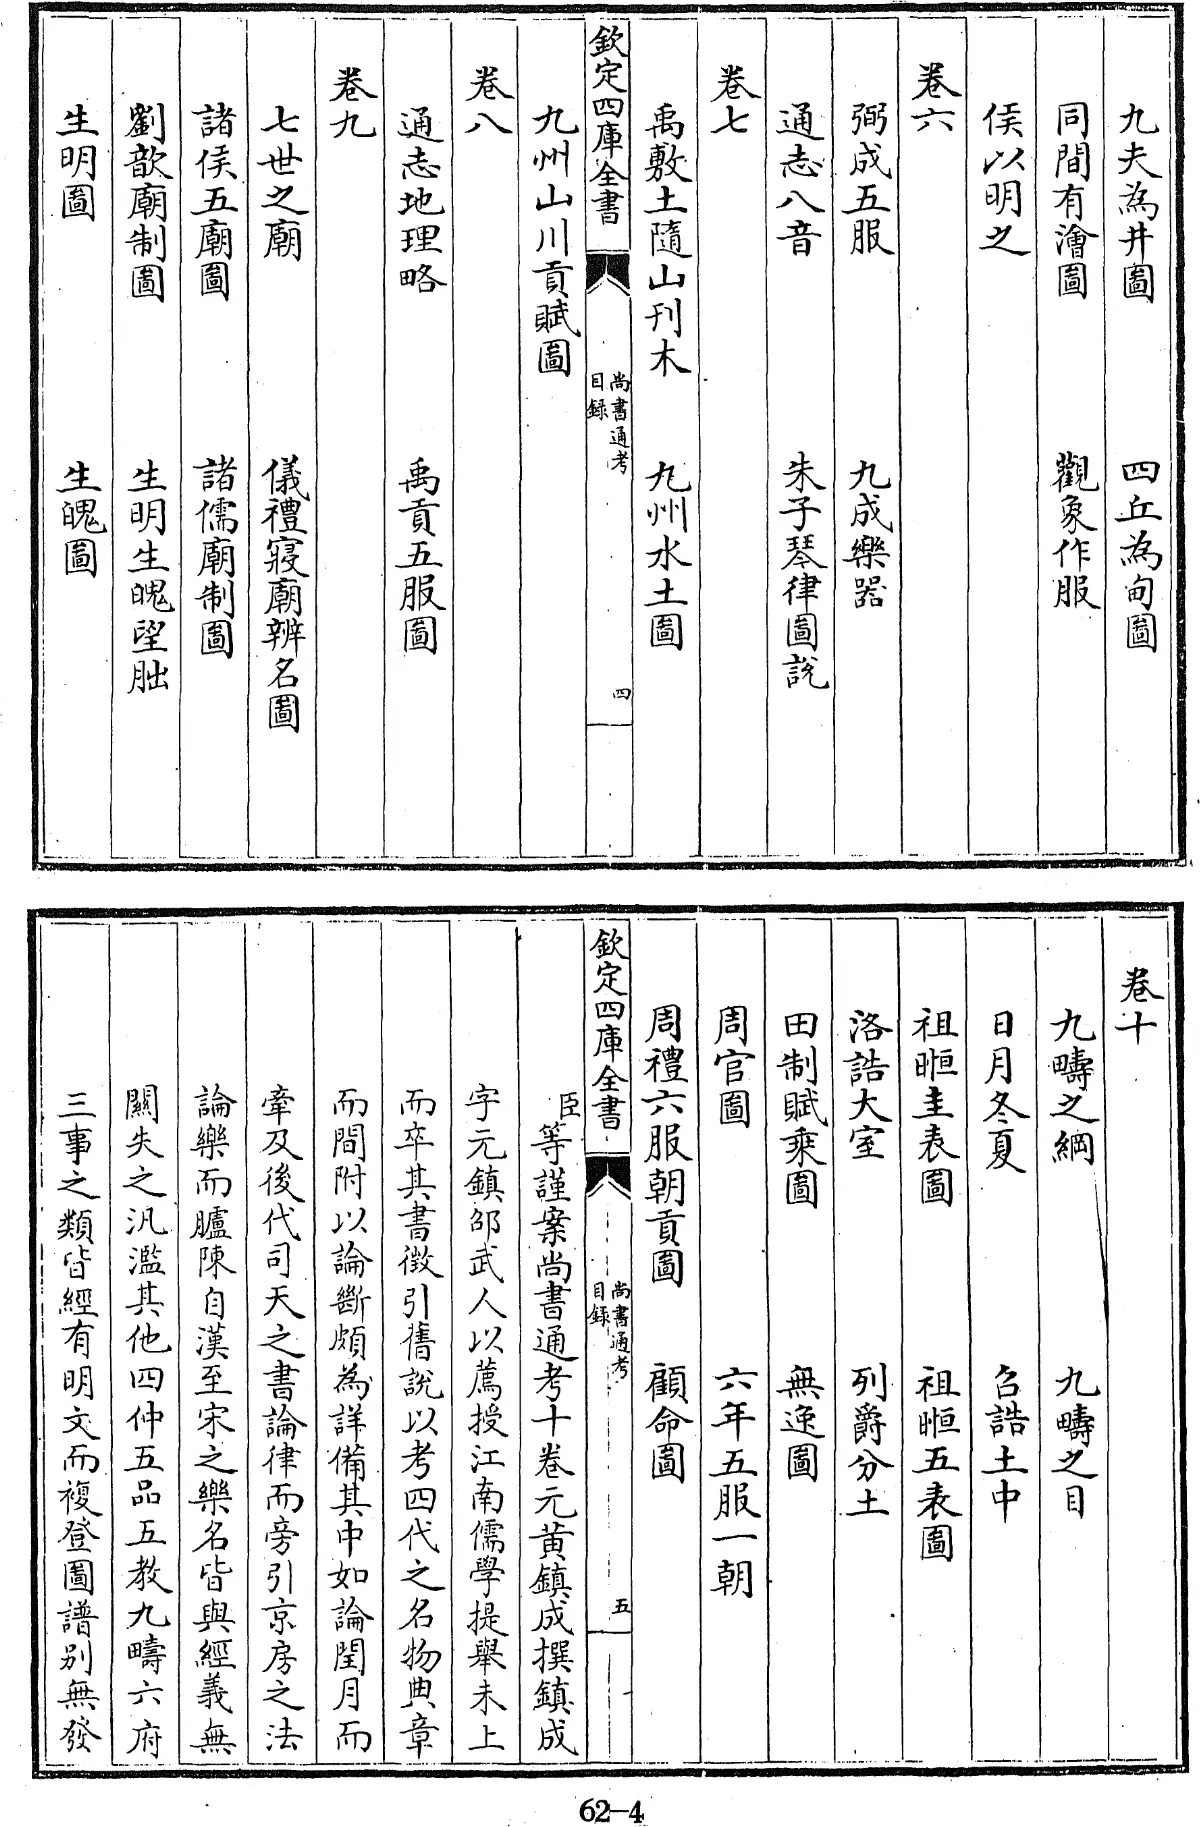 九夫為井圖　四丘為甸圖
同間有澮圖　觀象作服
侯以明之
卷六
弼成五服　九成樂器
通志八音　朱子琴律圖說
卷七
禹敷土隨山刊木　九州水土圖
欽定四庫全書　尚書通考目録　四
九州山川貢賦圖
卷八
通志地理略　禹貢五服圖
卷九
七世之廟　儀禮寢廟辨名圖
諸侯五廟圖　諸儒廟制圖
劉歆廟制圖　生明生魄望朏
生明圖　生魄圖
卷十
九疇之綱　九疇之目
日月冬夏　召誥土中
祖暅圭表圖　祖暅五表圖
洛誥大室　列爵分土
田制賦乘圖　無逸圖
周官圖　六年五服一朝
周禮六服朝貢圖　顧命圖
欽定四庫全書　尚書通考目録　五
臣等謹案尚書通考十卷元黄鎮成撰鎮成
字元鎮邵武人以薦授江南儒學提舉未上
而卒其書徴引舊說以考四代之名物典章
而間附以論斷頗為詳備其中如論閏月而
牽及後代司天之書論律而旁引京房之法
論樂而臚陳自漢至宋之樂名皆與經義無
關失之汎濫其他四仲五品五教九疇六府
三事之類皆經有明文而複登圖譜别無發
62-4